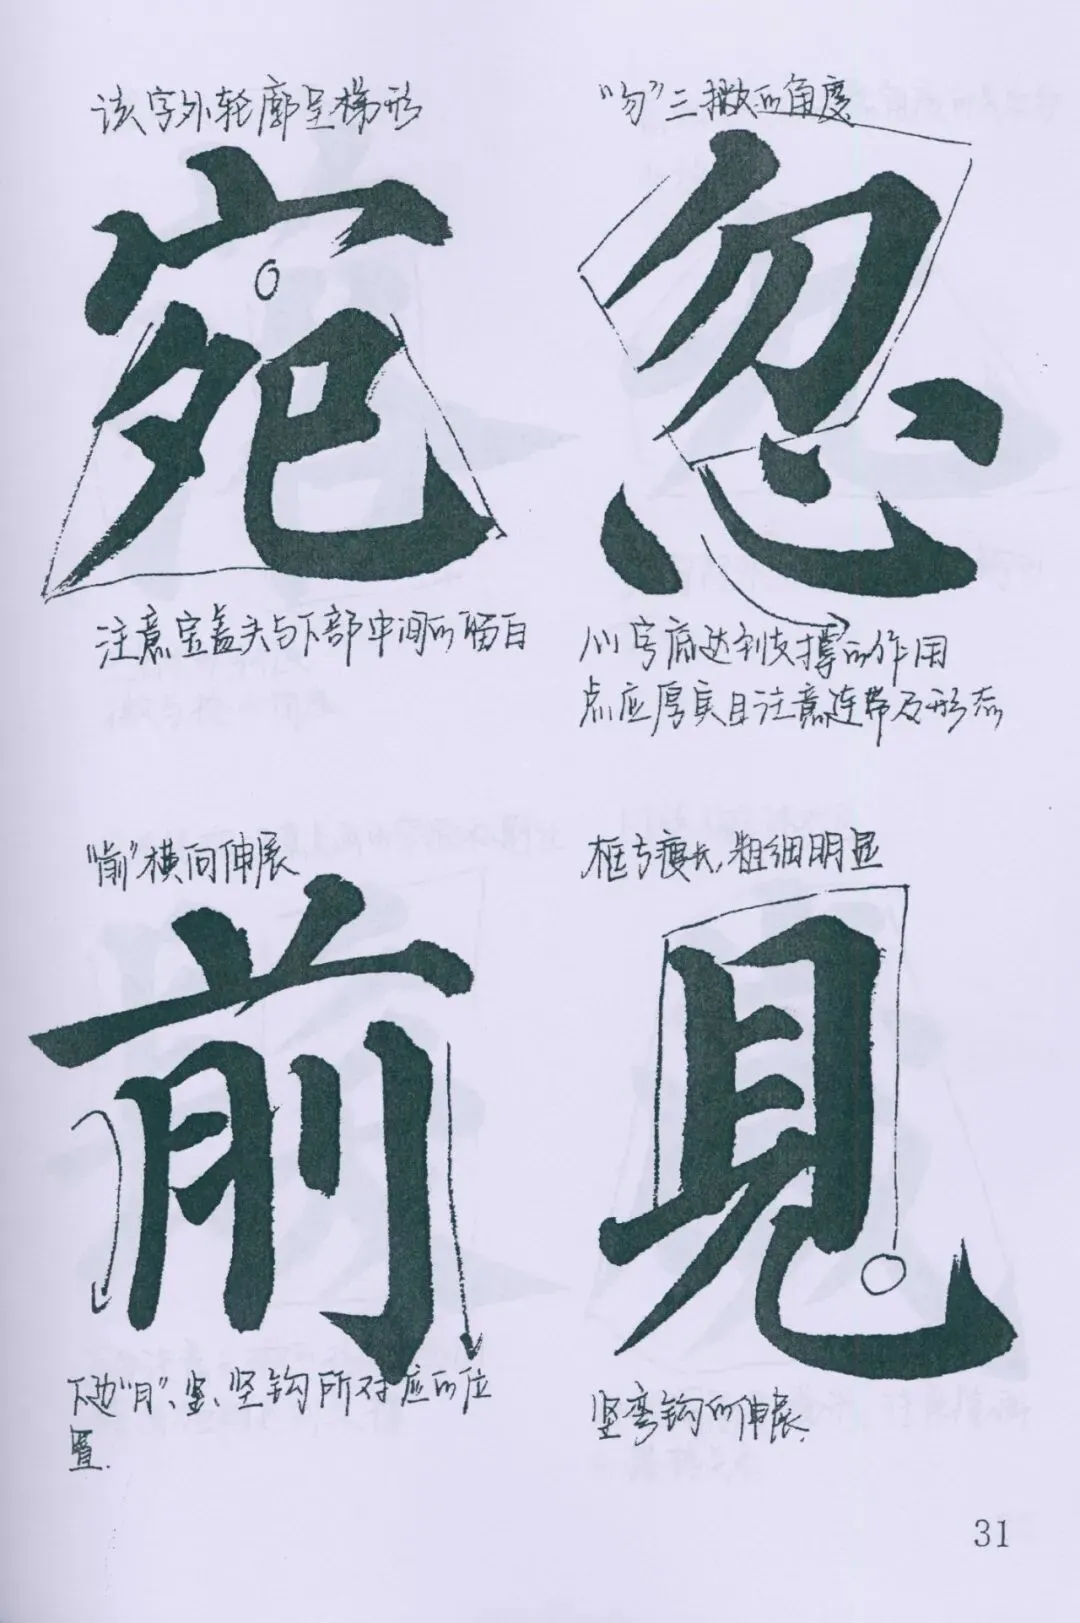 该字外轮廓呈梯形
宛
注意宝盖头与下部中间的留白
“勿”三撇的角度
忽
心字底达到支撑的作用
点应厚实且注意连带及形态
“前”横向伸展
前
下边“月”、竖、竖钩所对应的位
置.
框专瘦长,粗细明显
見
竖弯钩的伸展.
31